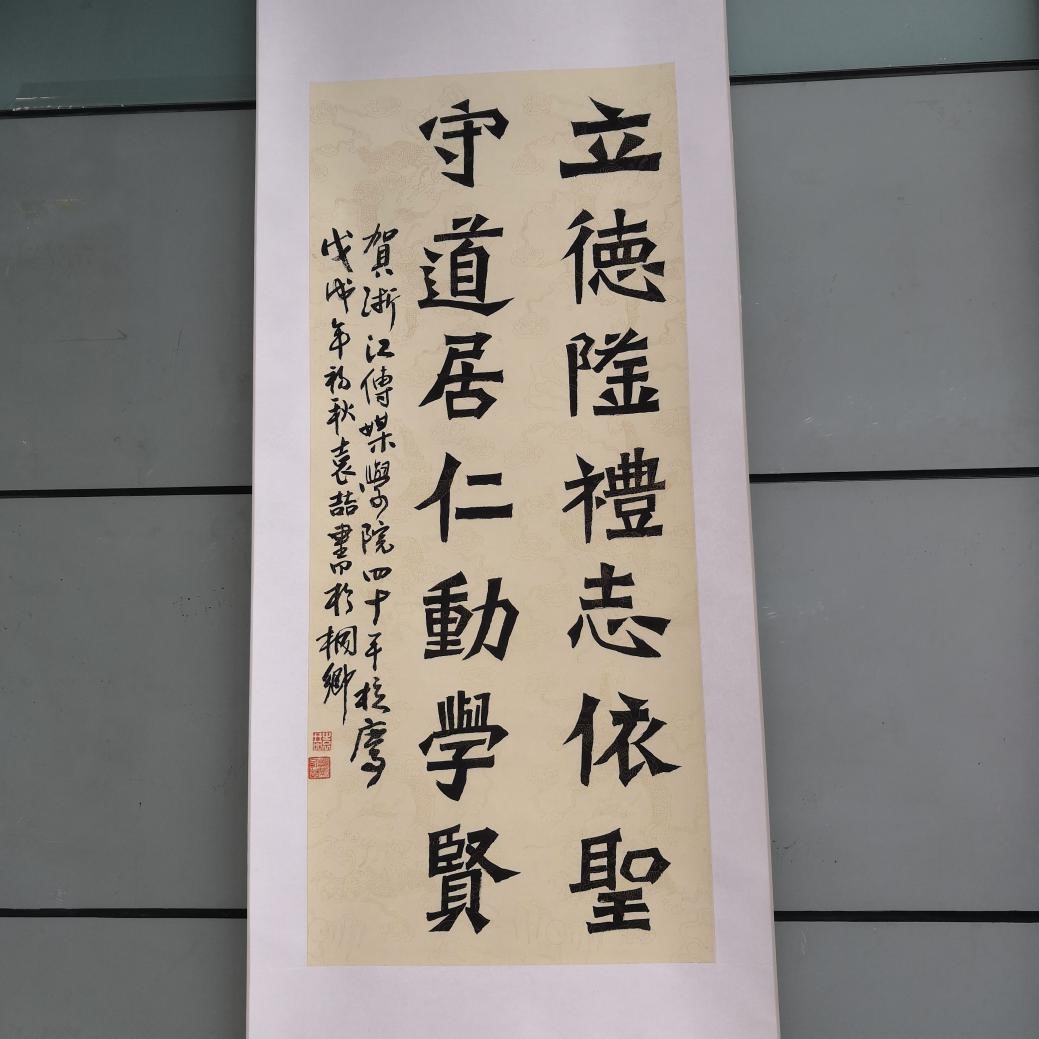 立德隆禮志依聖
守道居仁動學賢
賀浙江傳媒學院四十年校慶
戊戌年初秋袁喆書於桐鄉